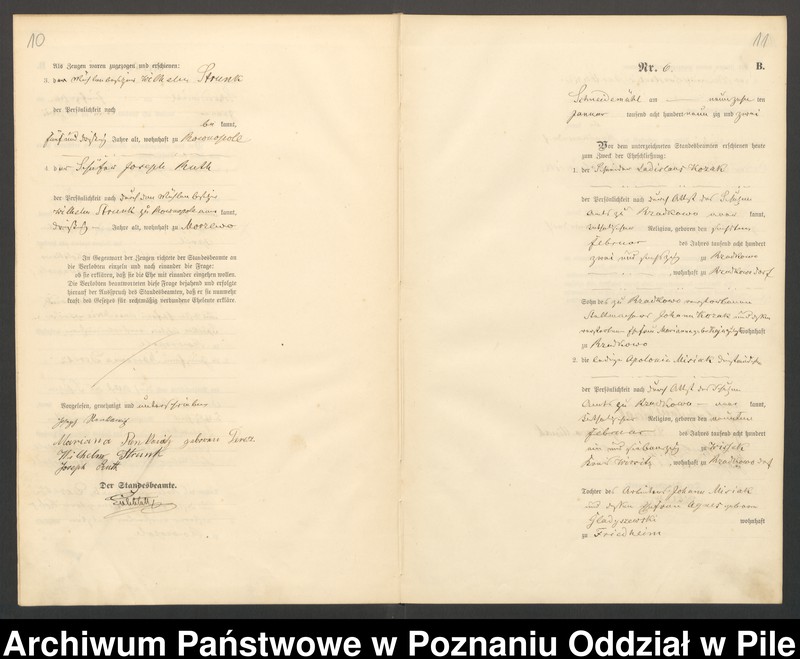 10
Als Zeugen waren zugezogen und erschienen:
3. der Mühlenbesitzer Wilhelm Strunk
der Persönlichkeit nach
be kannt,
fünf und dreißig Jahre alt, wohnhaft zu Rownopole
4. der Schäfer Joseph Ruth
der Persönlichkeit nach durch den Mühlenbesitzer
Wilhelm Strunk zu Rownopole kannt,
dreißig Jahre alt, wohnhaft zu Morzewo
In Gegenwart der Zeugen richtete der Standesbeamte an
die Verlobten einzeln und nach einander die Frage:
ob sie erklären, daß sie die Ehe mit einander eingehen wollen.
Die Verlobten beantworteten diese Frage bejahend und erfolgte
hierauf der Ausspruch des Standesbeamten, daß er sie nunmehr
kraft des Gesetzes für rechtmäßig verbundene Eheleute erkläre.
Vorgelesen, genehmigt und unterschrieben
Mariana geborene
Wilhelm Strunk
Joseph Ruth
Der Standesbeamte.
11
Nr. 6. B.
Schneidemühl am neunzehn ten
Januar tausend acht hundert neun zig und zwei
Vor dem unterzeichneten Standesbeamten erschienen heute
zum Zweck der Eheschließung:
1. der Ladislaus Kozak
der Persönlichkeit nach durch Attest des
Amts zu Bradkowo aner kannt,
katholischer Religion, geboren den sechsten
Februar des Jahres tausend acht hundert
zwei und sechszig zu Bradkowo
, wohnhaft zu
Sohn des zu Bradkowo verstorbenen
Johann Kozak und dessen
verstorbenen Ehefrau Marianna geb. wohnhaft
zu Bradkowo
2. die ledige Apolonia Misiak
der Persönlichkeit nach durch Attest des
Amts zu Bradkowo aner kannt,
katholischer Religion, geboren den neunten
Februar des Jahres tausend acht hundert
ein und siebenzig zu Wissek
Kreis Wirsitz, wohnhaft zu
Tochter des Arbeiters Johann Misiak
und dessen Ehefrau Agnes geborene
Gladyszewski wohnhaft
zu Friedheim
Archiwum Państwowe w Poznaniu Oddział w Pile